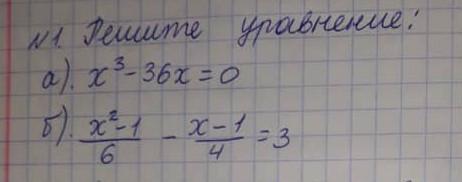 №1. Решите уравнение:
а). x³-36x=0
б). (x²-1)/6 - (x-1)/4 = 3